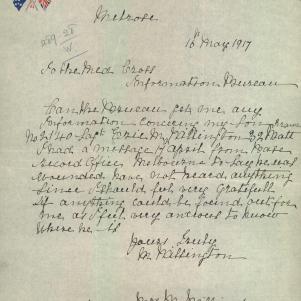 Melrose
16th May 1917
To the Red Cross
Information Bureau
Can the Bureau get me any
Information concering my Son
No 2140 Sapt Eric M 22 Batt
I had a message 7 April from Base
Record Office Melbourne to say he was
Wounded have not heard anything
Since I should feel very gratefull
if anything could be found out for
me as I feel very anxious to know
Where he is
Yours Truly
M